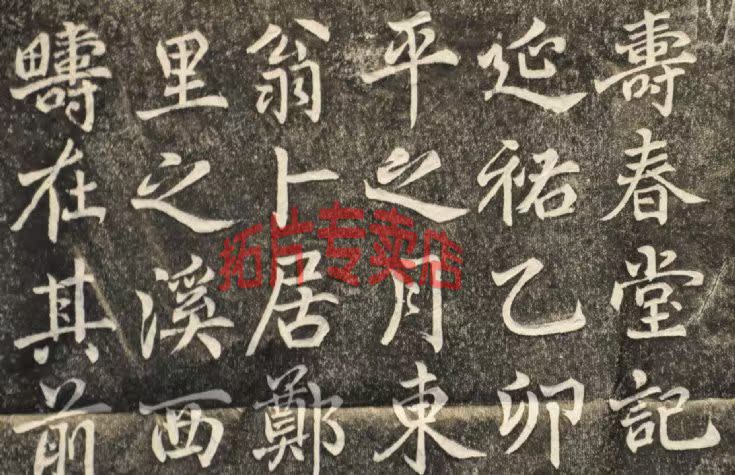 壽春堂記
延祐乙卯
平之月東
翁卜居鄭
里之溪西
疇在其前
拓片专卖店